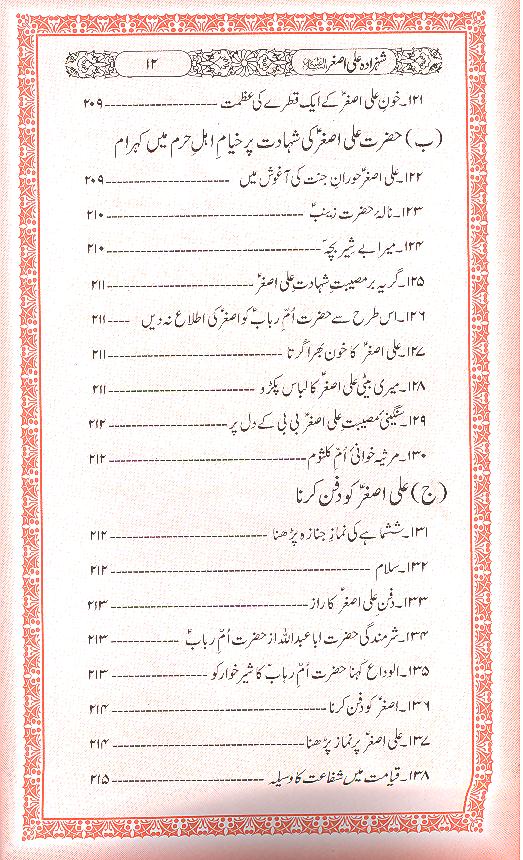 شہزادہ علی اصغرؑ ۱۲
۱۲۱۔خون علی اصغرؑ کے ایک قطرے کی عظمت ۲۰۹
(ب) حضرت علی اصغرؑ کی شہادت پر خیامِ اہلِ حرم میں کہرام
۱۲۲۔علی اصغرؑ حورانِ جنت کی آغوش میں ۲۰۹
۱۲۳۔نالۂ حضرت زینبؑ ۲۱۰
۱۲۴۔میرا بے شیر بچہ ۲۱۰
۱۲۵۔گریہ بر مصیبتِ شہادتِ علی اصغرؑ ۲۱۱
۱۲۶۔اس طرح سے حضرت اُمّ ربابؑ کو اصغرؑ کی اطلاع نہ دیں ۲۱۱
۱۲۷۔علی اصغرؑ کا خون بھرا گرتا ۲۱۱
۱۲۸۔میری بیٹی علی اصغرؑ کا لباس پکڑو ۲۱۱
۱۲۹۔سنگینیٔ مصیبتِ علی اصغرؑ بی بی کے دل پر ۲۱۲
۱۳۰۔مرثیہ خوانیٔ اُمّ کلثومؑ ۲۱۲
(ج) علی اصغرؑ کو دفن کرنا
۱۳۱۔ششماہے کی نمازِ جنازہ پڑھنا ۲۱۲
۱۳۲۔سلام ۲۱۲
۱۳۳۔دفن علی اصغرؑ کا راز ۲۱۳
۱۳۴۔شرمندگی حضرت ابا عبداللہ از حضرت اُمّ ربابؑ ۲۱۳
۱۳۵۔الوداع کہنا حضرت اُمّ ربابؑ کا شیر خوار کو ۲۱۳
۱۳۶۔اصغرؑ کو دفن کرنا ۲۱۴
۱۳۷۔علی اصغرؑ پر نماز پڑھنا ۲۱۴
۱۳۸۔قیامت میں شفاعت کا وسیلہ ۲۱۵